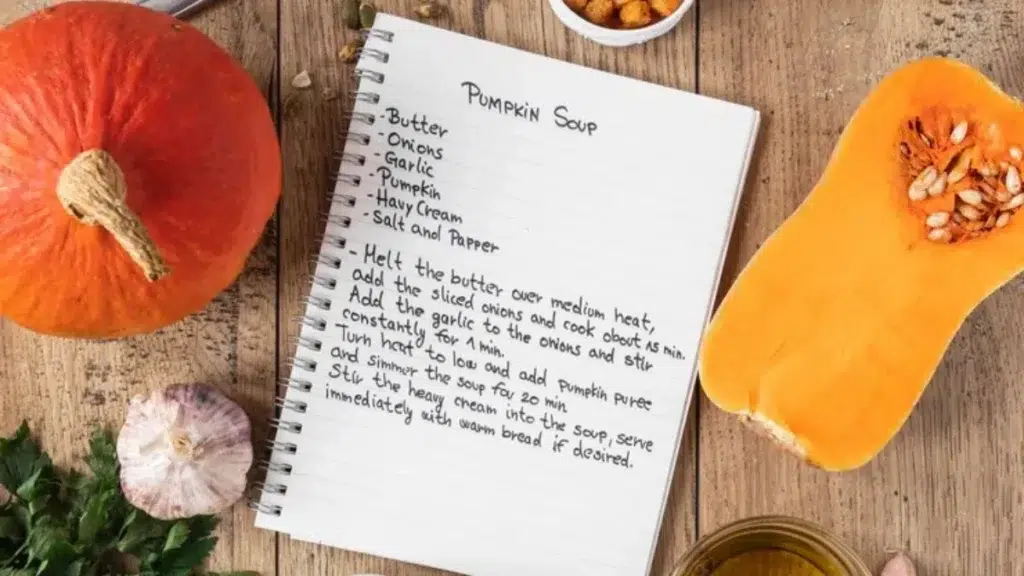 Pumpkin Soup
- Butter
- Onions
- Garlic
- Pumpkin
- Havy Cream
- Salt and Papper
- Melt the butter over medium heat,
add the sliced onions and cook about 15 min.
Add the garlic to the onions and stir
constantly for 1 min.
Turn heat to low and add pumpkin puree
and simmer the soup for 20 min
Stir the heavy cream into the soup, serve
immediately with warm bread if desired.